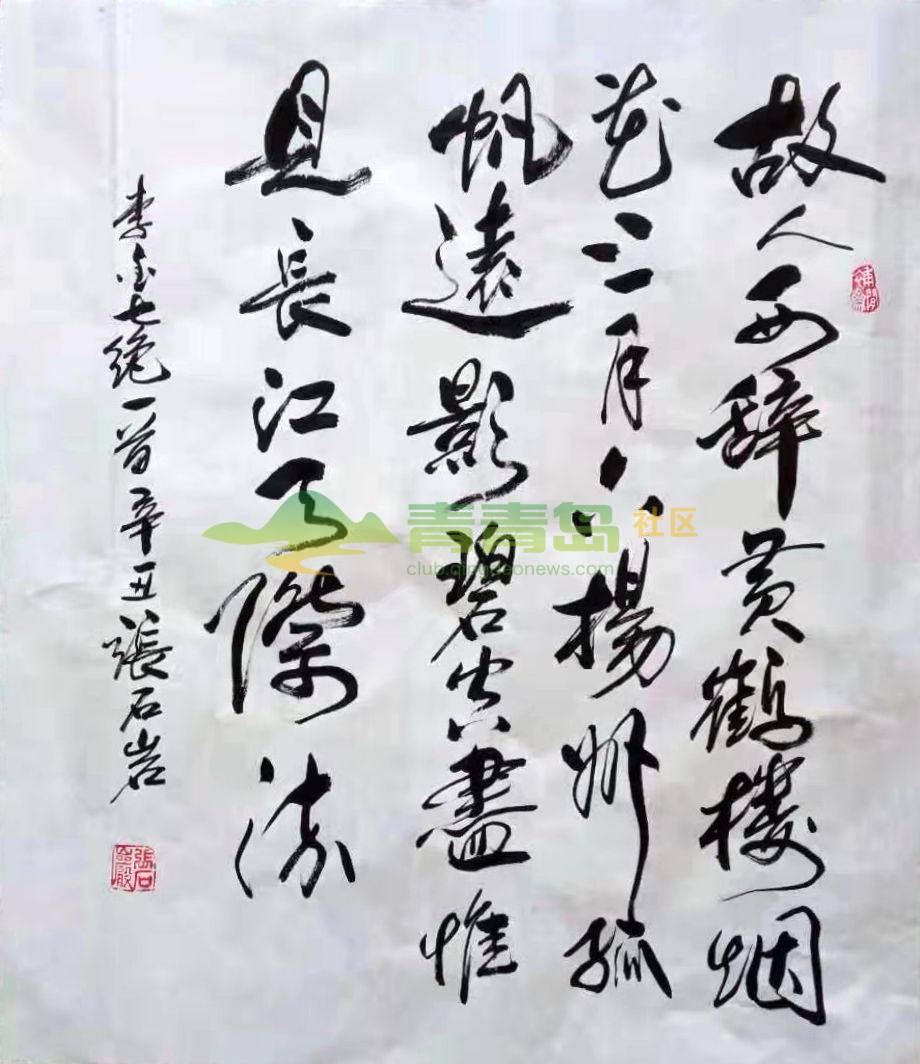 故人西辭黄鶴樓烟
花三月下揚州孤
帆遠影碧空盡惟
見長江天際流
李白七绝一首辛丑張石岩
青青岛社区
club.qingdaonews.com